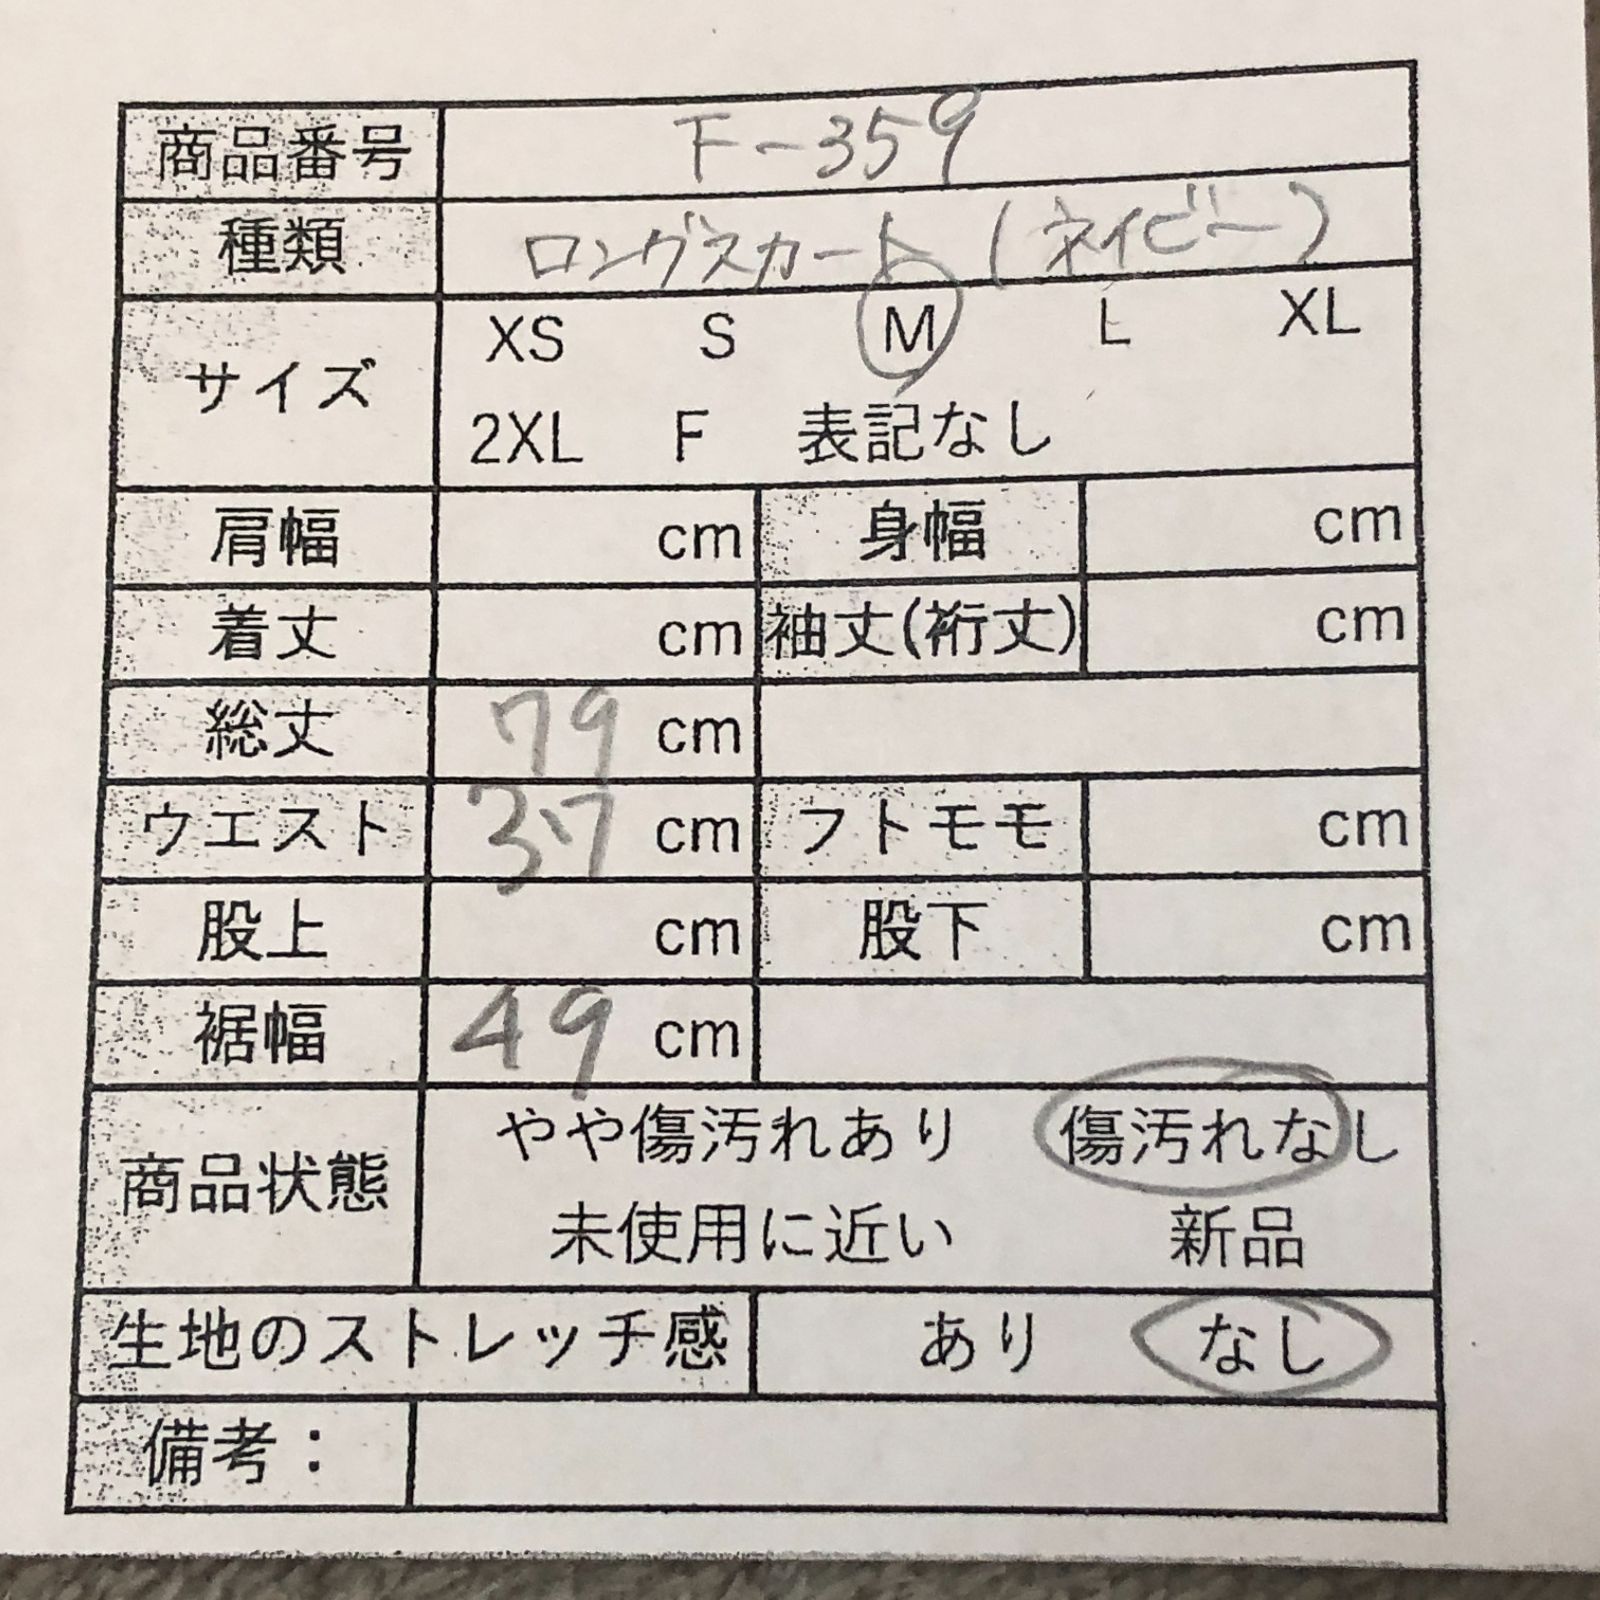 商品番号 F-359
種類 ロングスカート (ネイビー)
サイズ XS S M L XL
2XL F 表記なし
肩幅 cm 身幅 cm
着丈 cm 袖丈(裄丈) cm
総丈 79 cm
ウエスト 37 cm フトモモ cm
股上 cm 股下 cm
裾幅 49 cm
商品状態 やや傷汚れあり 傷汚れなし
未使用に近い 新品
生地のストレッチ感 あり なし
備考：